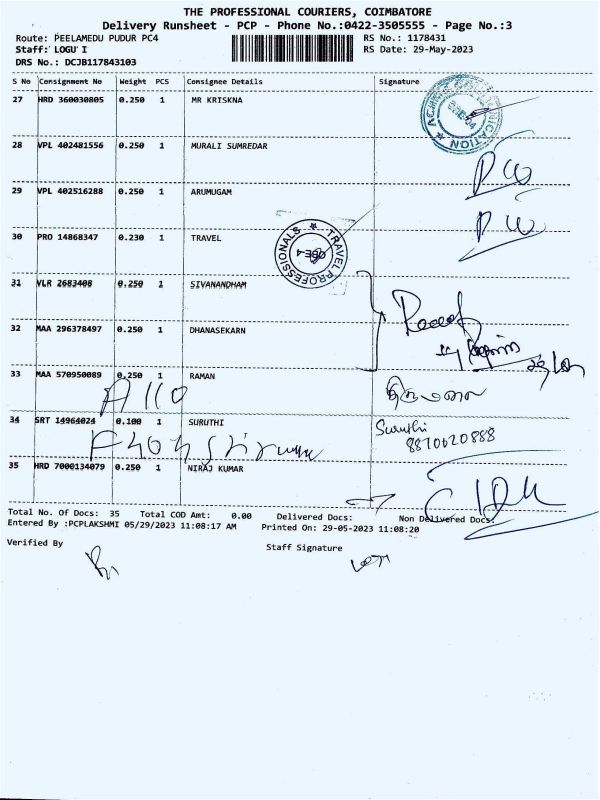 THE PROFESSIONAL COURIERS, COIMBATORE
Delivery Runsheet - PCP - Phone No.:0422-3505555 - Page No.:3
Route: PEELAMEDU PUDUR PC4
RS No.: 1178431
Staff: LOGU I
RS Date: 29-May-2023
DRS No.: DCJB117843103
S No Consignment No Weight PCS Consignee Details Signature
27 HRD 360030805 0.250 1 MR KRISKNA
28 VPL 402481556 0.250 1 MURALI SUMREDAR
29 VPL 402516288 0.250 1 ARUMUGAM
30 PRO 14868347 0.230 1 TRAVEL
TRAVEL PROFESSIONALS
31 VLR 2683408 0.250 1 SIVANANDHAM
32 MAA 296378497 0.250 1 DHANASEKARN
33 MAA 570950089 0.250 1 RAMAN
A 110
திருமலை
34 SRT 14964024 0.100 1 SURUTHI
Suruthi
8870620888
35 HRD 7000134079 0.250 1 NIRAJ KUMAR
Total No. Of Docs: 35 Total COD Amt: 0.00 Delivered Docs: Non Delivered Docs:
Entered By :PCPLAKSHMI 05/29/2023 11:08:17 AM Printed On: 29-05-2023 11:08:20
Verified By
Staff Signature